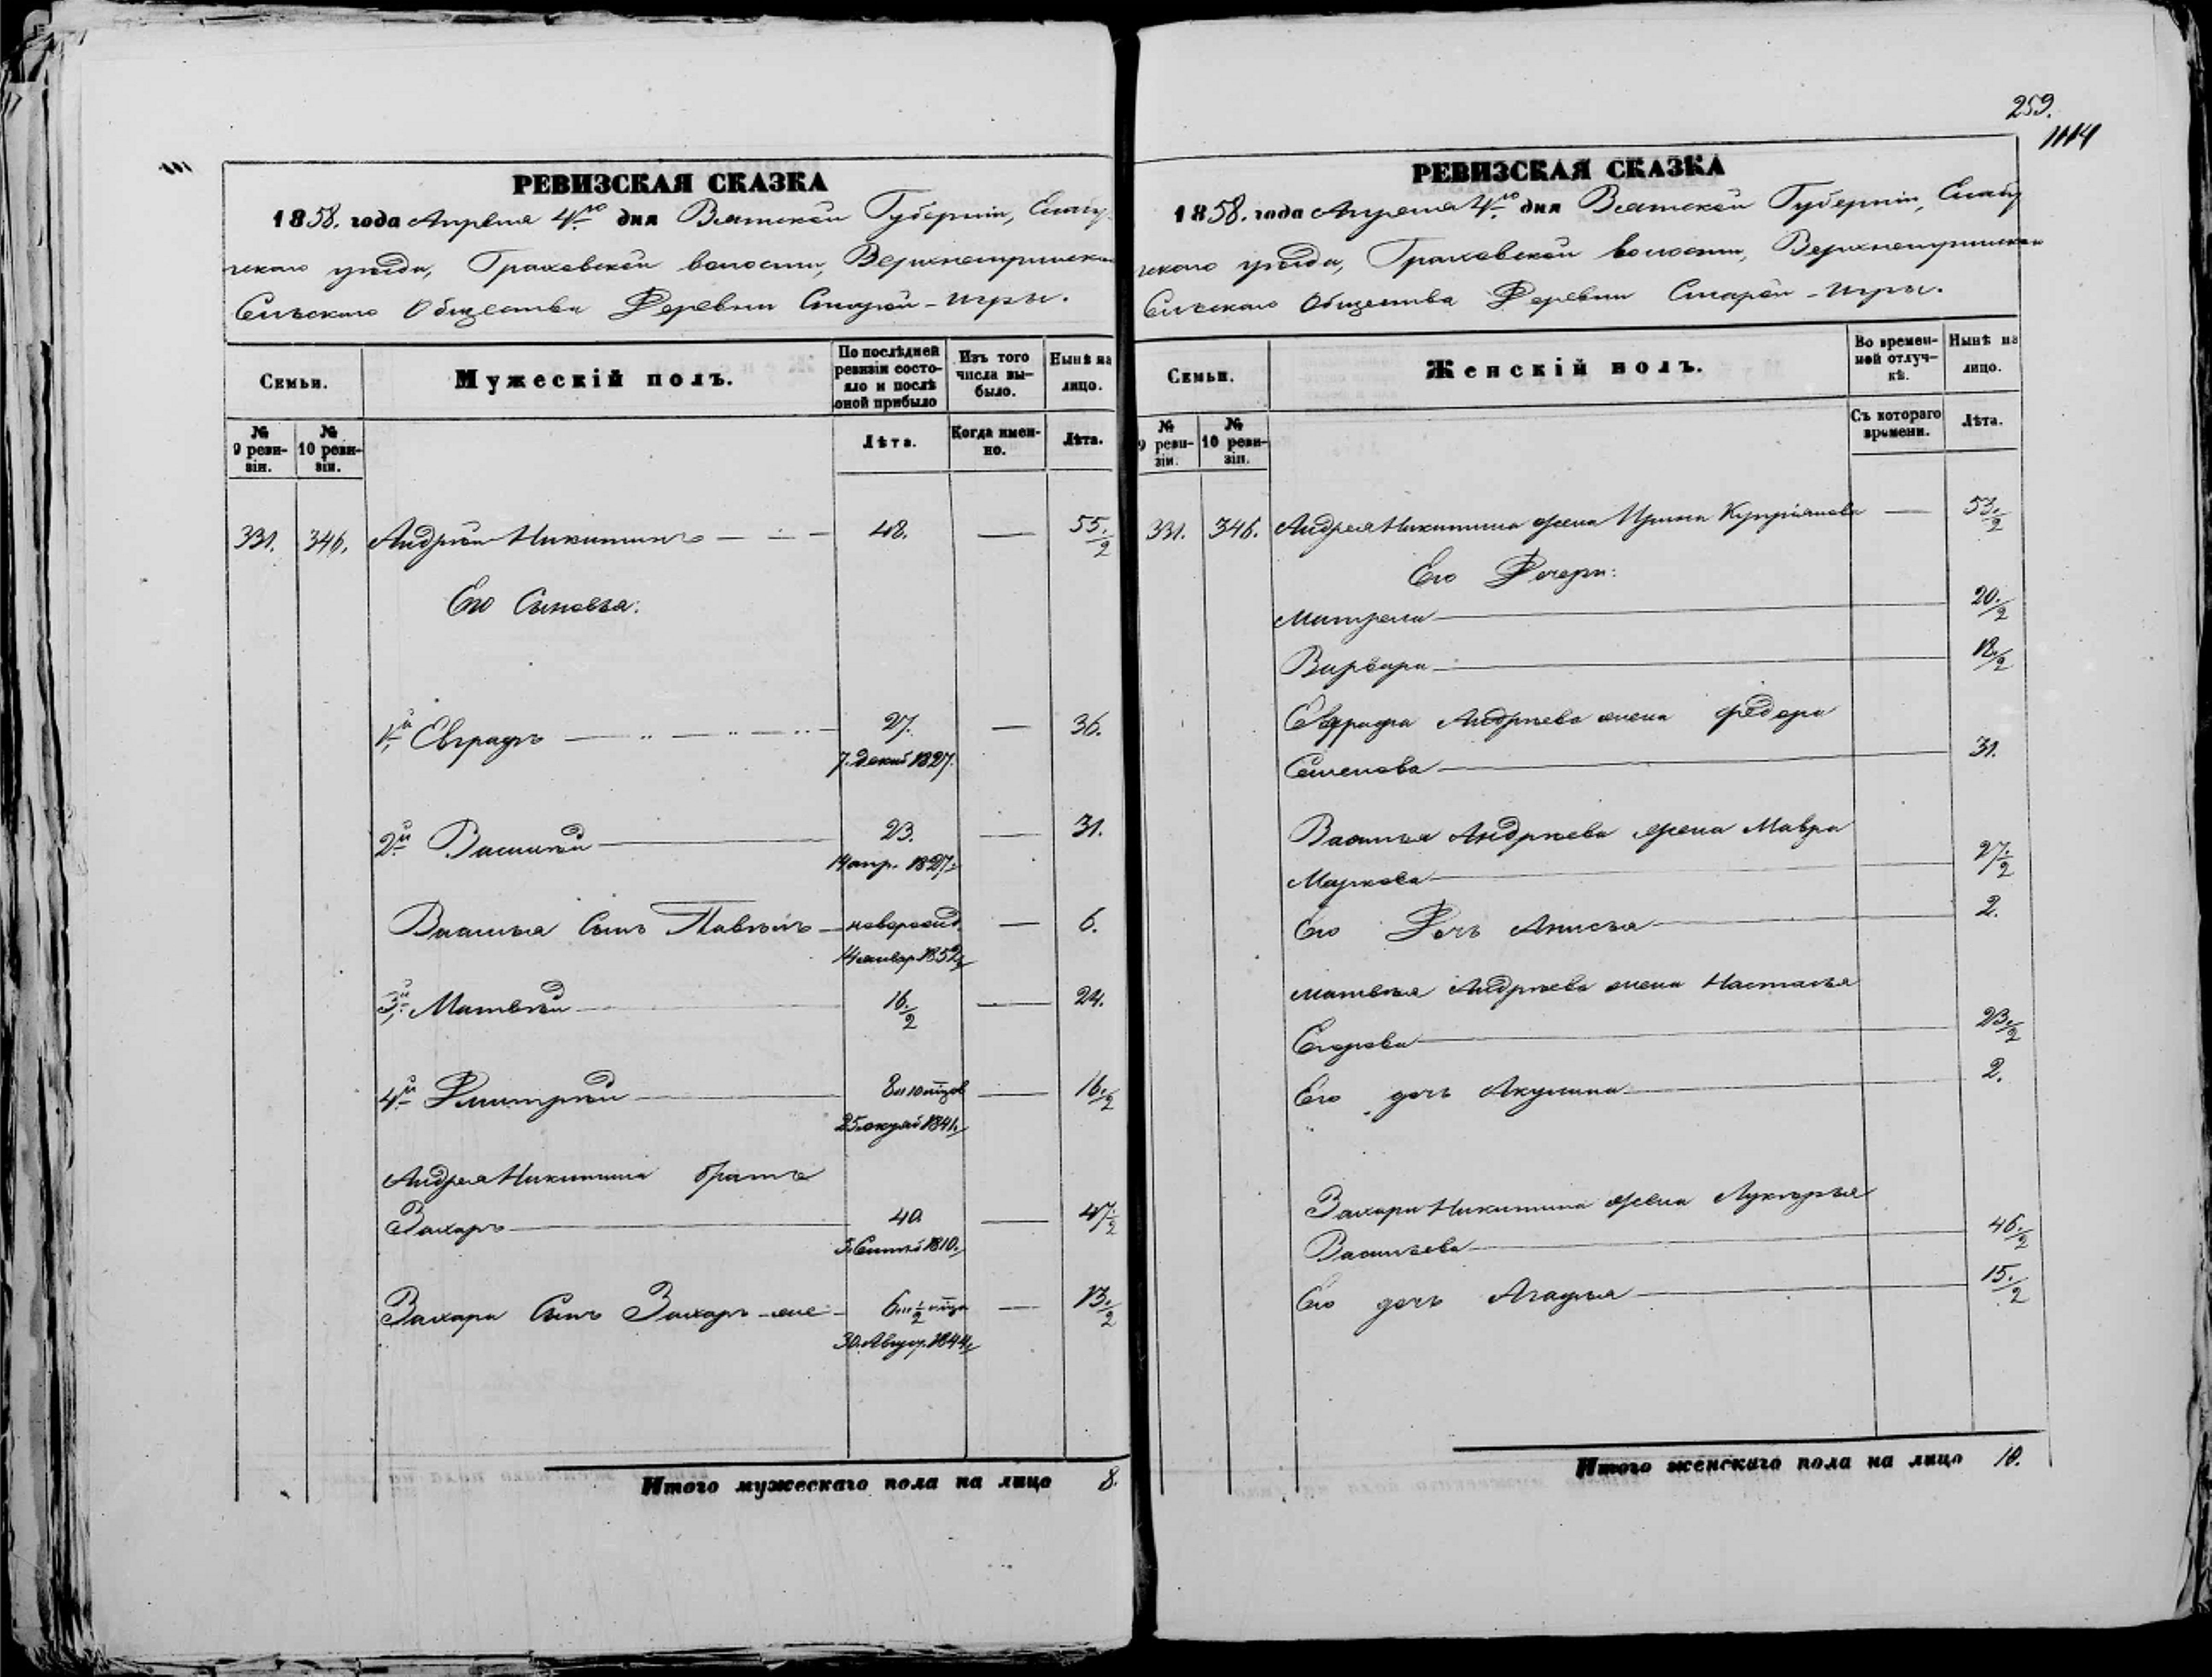 259.
1114
РЕВИЗСКАЯ СКАЗКА
1858. года Апреля 4го дня Вятской Губернiи, Елабу-
жскаго уѣзда, Граховской волости, Верхнеигринскаго
Сельскаго Общества Деревни Старой-Игры.
Семьи.
Мужескій полъ.
По послѣдней ревизіи состо-яло и послѣ оной прибыло
Изъ того числа вы-было.
Нынѣ на лицо.
№ 9 реви-зіи.
№ 10 реви-зіи.
Лѣта.
Когда имен-но.
Лѣта.
331. 346. Андрей Никитинъ 48. — 55.½
Его Сыновья:
1й Евграфъ 27. — 36.
7. декаб 1827.
2й Василій 23. — 31.
14 апр. 1827.
Василья Сынъ Павелъ новорожд. — 6.
14 январ 1852
3й Матвѣй 16.½ — 24.
4й Дмитрій 8 и 10 мѣсцов — 16.½
25. октяб 1841.
Андрея Никитина братъ
Захаръ 40 — 47.½
5. Сентяб 1810.
Захара Сынъ Захаръ-же 6 и ½ мѣсца — 13.½
30. Август. 1844.
Итого мужескаго пола на лицо 8.
РЕВИЗСКАЯ СКАЗКА
1858. года Апреля 4го дня Вятской Губерніи, Елабу
жскаго уѣзда, Граховской волости, Верхнеигринскаго
Сельскаго Общества Деревни Старой-Игры.
Семьи.
Женскій полъ.
Во времен-ной отлуч-кѣ.
Нынѣ на лицо.
№ 9 реви-зіи.
№ 10 реви-зіи.
Съ котораго времени.
Лѣта.
331. 346. Андрея Никитина жена Ирина Купріянова — 53.½
Его Дочери:
Матрена 20.½
Варвара 18.½
Евграфа Андрѣева жена Федора
Семенова 31.
Василья Андрѣева жена Мавра
Маркова 27.½
Его Дочь Анисья 2.
Матвѣя Андрѣева жена Настасья
Егорова 23.½
Его дочь Акулина 2.
Захара Никитина жена Лукерья
Васильева 46.½
Его дочь Агафья 15.½
Итого женскаго пола на лицо 10.